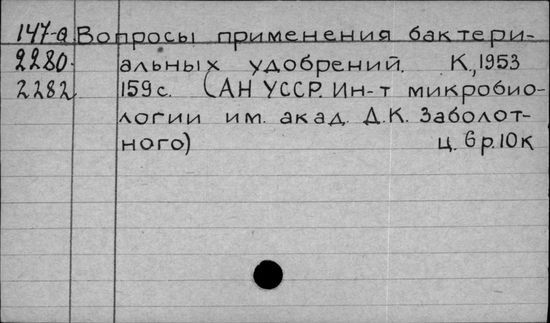 147-а Вопросы применения бактери-
2280. альных удобрений. К., 1953
2282 159 с. (АН УССР. Ин-т микробио-
логии им. акад. Д.К. Заболот-
ного) ц. 6 р. 10 к